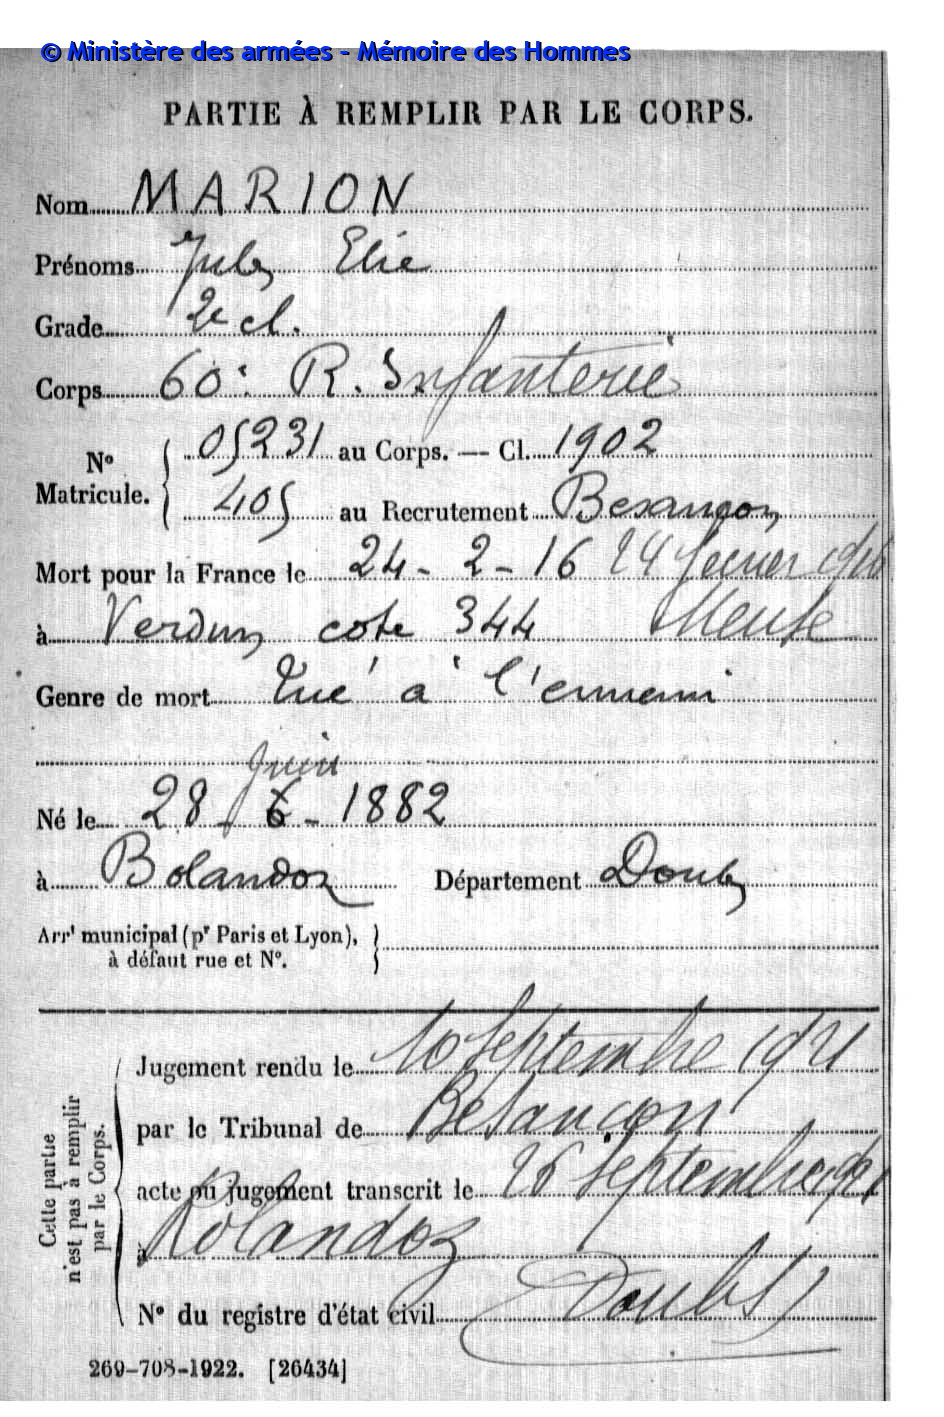 © Ministère des armées - Mémoire des Hommes
PARTIE À REMPLIR PAR LE CORPS.
Nom MARION
Prénoms Jules Elie
Grade 2e cl.
Corps 60e R. Infanterie
N° Matricule. 05231 au Corps. — Cl. 1902
405 au Recrutement Besançon
Mort pour la France le 24-2-16 24 février 1916
à Verdun cote 344 Meuse
Genre de mort Tué à l'ennemi
juin
Né le 28-6-1882
à Bolandoz Département Doubs
Arrt municipal (pr Paris et Lyon),
à défaut rue et N°.
Cette partie n'est pas à remplir par le Corps.
Jugement rendu le 10 septembre 1921
par le Tribunal de Besançon
acte ou jugement transcrit le 26 septembre 1921
à Bolandoz
N° du registre d'état civil Doubs
269-708-1922. [26434]